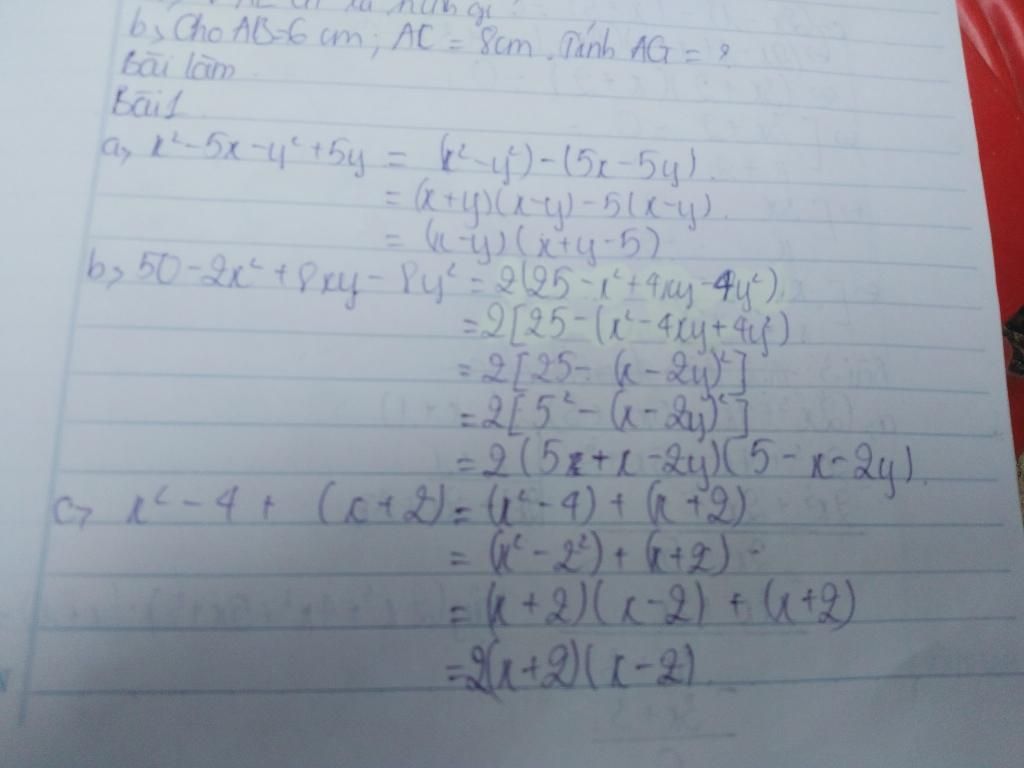 b, Cho AB=6 cm; AC = 8cm. Tính AG = ?
Bài làm.
Bài 1
a, x² - 5x - y² + 5y = (x² - y²) - (5x - 5y).
= (x+y)(x-y) - 5(x-y).
= (x-y)(x+y-5)
b, 50 - 2x² + 8xy - 8y² = 2(25 - x² + 4xy - 4y²)
= 2[25 - (x² - 4xy + 4y²)
= 2[25 - (x - 2y)²]
= 2[5² - (x - 2y)²]
= 2(5x + x - 2y)(5 - x - 2y).
c, x² - 4 + (x + 2) = (x² - 4) + (x + 2)
= (x² - 2²) + (x + 2)
= (x + 2)(x - 2) + (x + 2)
= 2(x + 2)(x - 2)